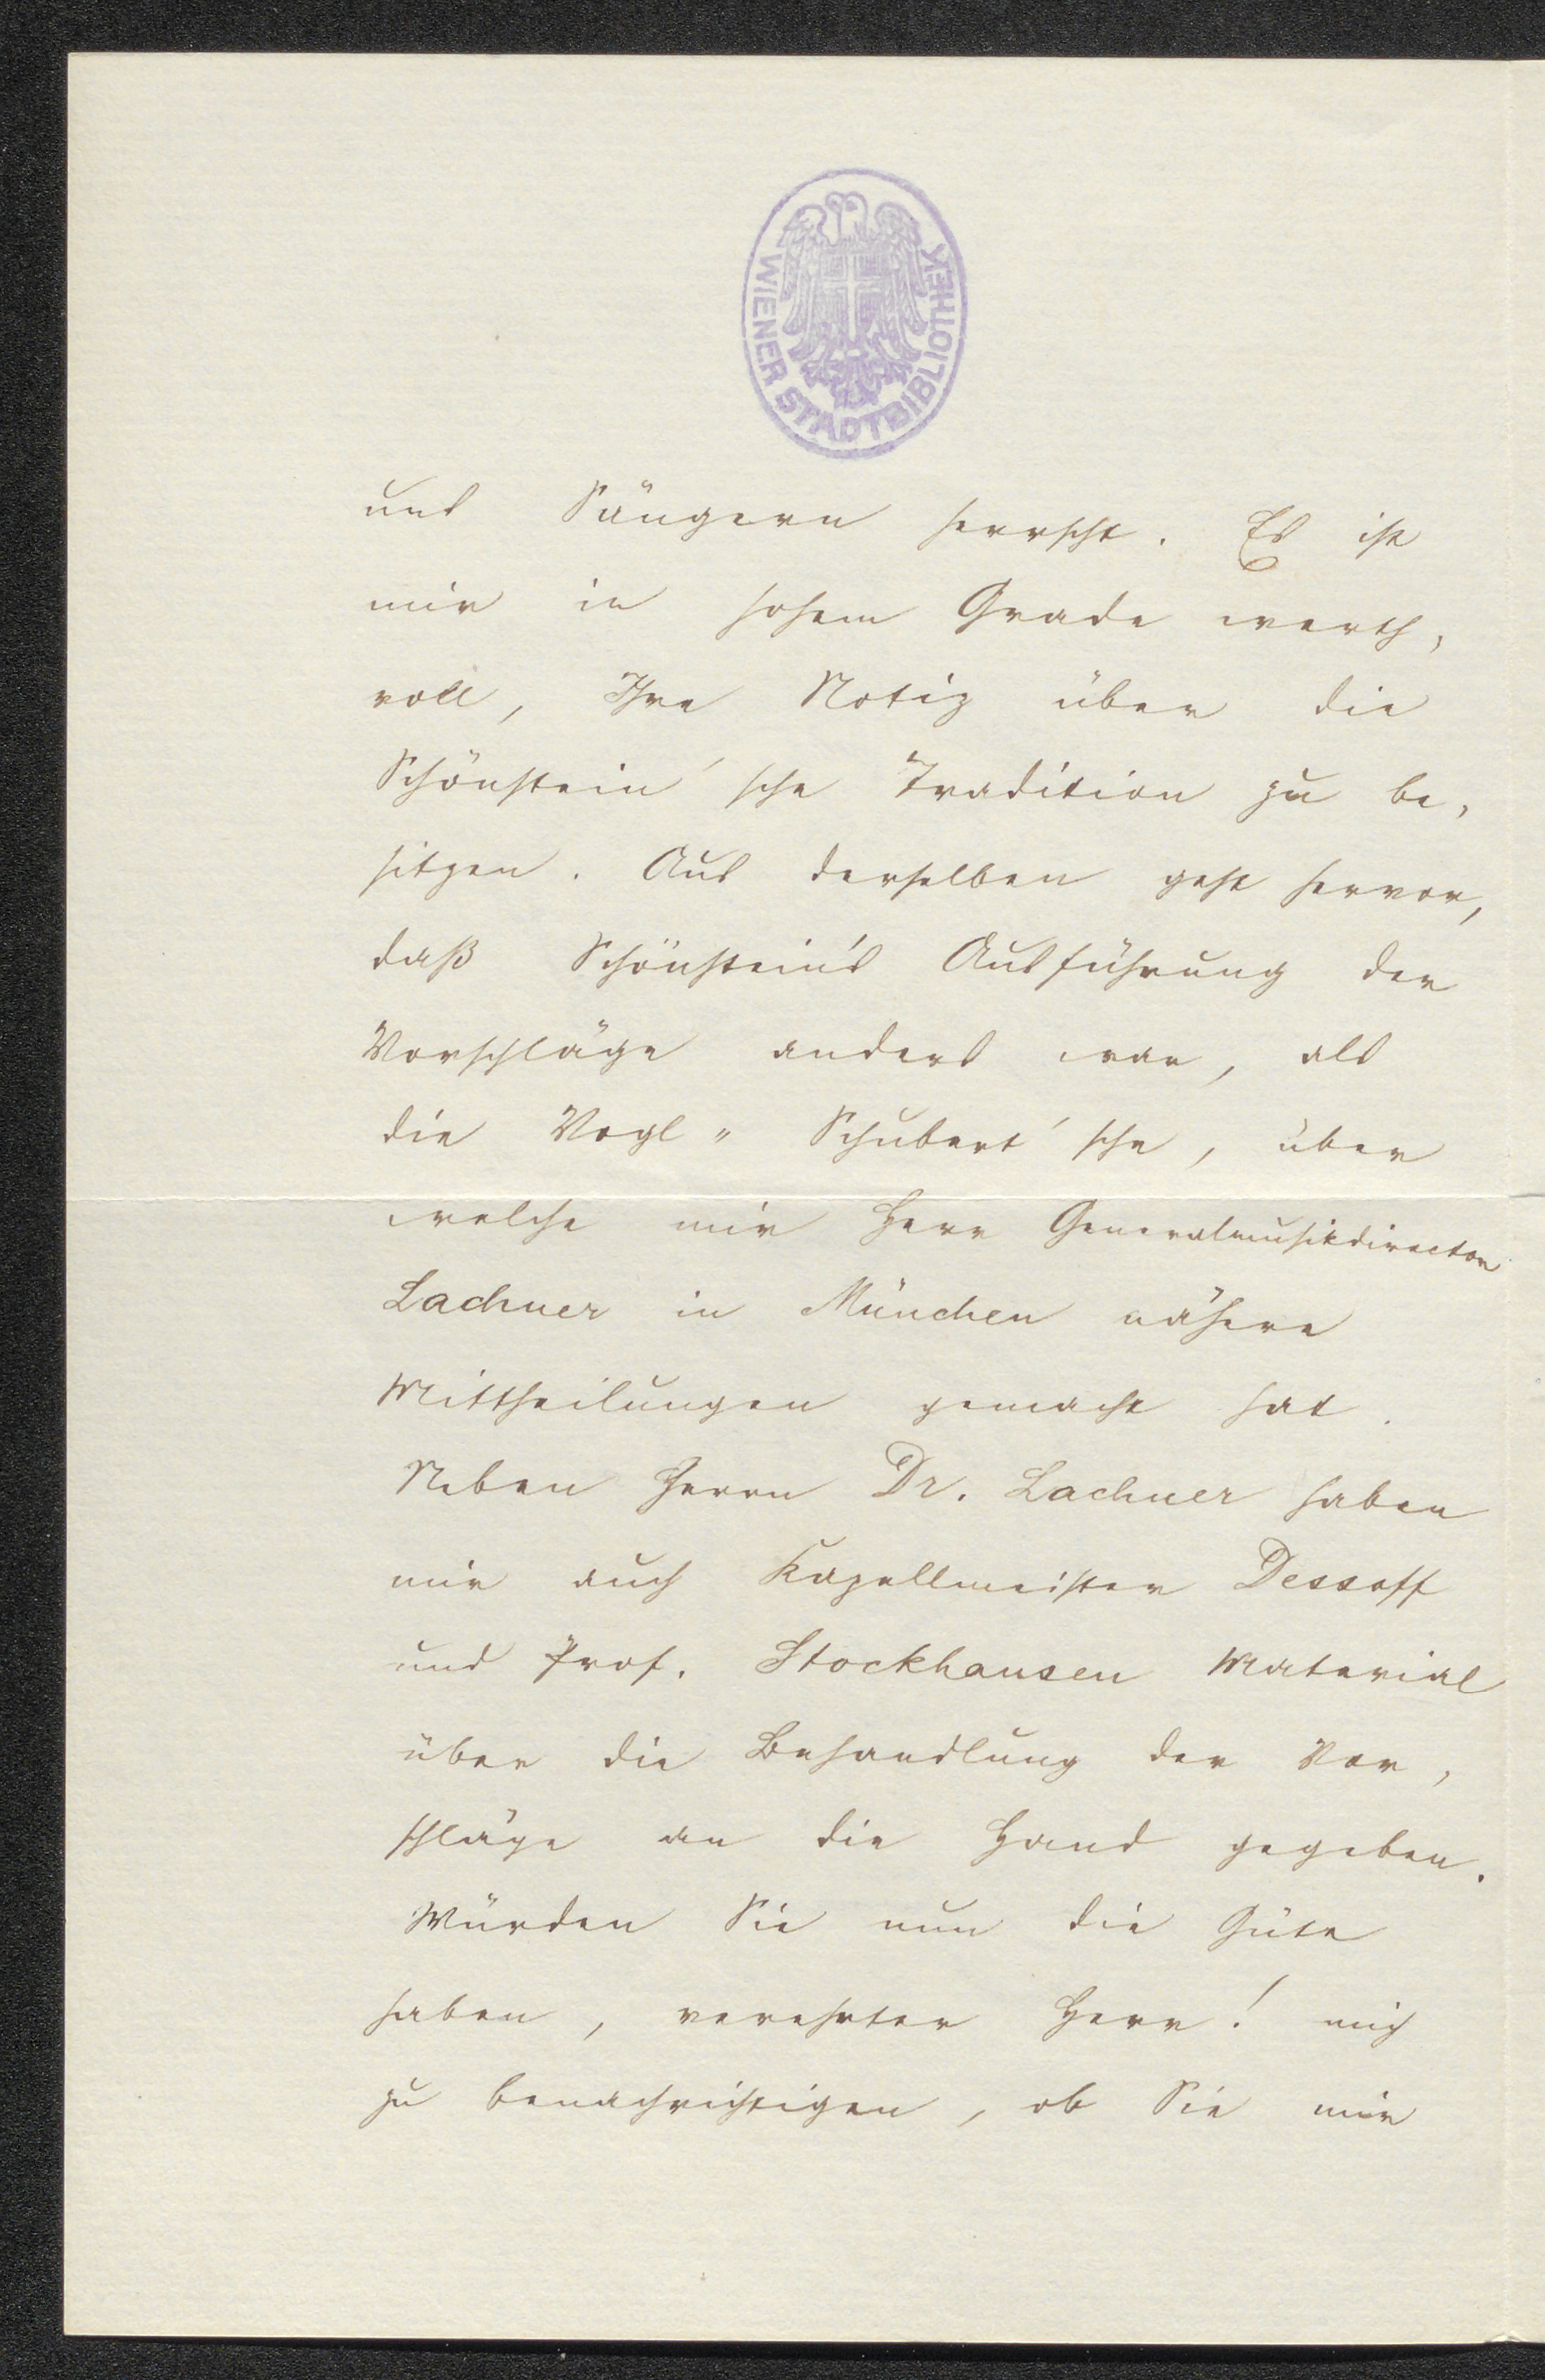 WIENER STADTBIBLIOTHEK
und Sängern herrscht. Es ist
mir in hohem Grade werth-
voll, Ihre Notiz über die
Schönstein'sche Tradition zu be-
sitzen. Aus derselben geht hervor,
daß Schönstein's Ausführung der
Vorschläge anders war, als
die Vogl-Schubert'sche, über
welche mir Herr Generalmusikdirector
Lachner in München nähere
Mittheilungen gemacht hat.
Neben Herrn Dr. Lachner haben
mir auch Kapellmeister Dessoff
und Prof. Stockhausen Material
über die Behandlung der Vor-
schläge an die Hand gegeben.
Würden Sie nun die Güte
haben, verehrter Herr! mich
zu benachrichtigen, ob Sie mir